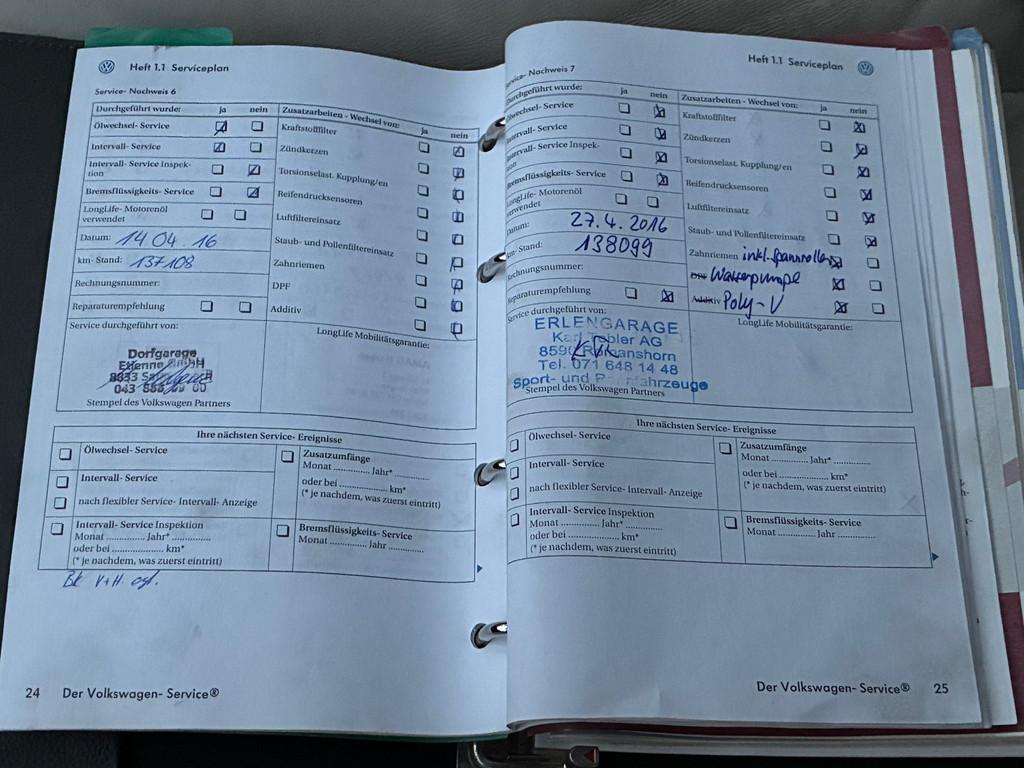 Heft 1.1 Serviceplan
Service- Nachweis 6
Durchgeführt wurde: ja nein
Ölwechsel- Service
Intervall- Service
Intervall- Service Inspek-
tion
Bremsflüssigkeits- Service
LongLife- Motorenöl
verwendet
Datum: 14 04. 16
km- Stand: 137108
Rechnungsnummer:
Reparaturempfehlung
Service durchgeführt von:
Dorfgarage
Etienne GmbH
8833
043 888 00
Stempel des Volkswagen Partners
Zusatzarbeiten - Wechsel von: ja nein
Kraftstofffilter
Zündkerzen
Torsionselast. Kupplung/en
Reifendrucksensoren
Luftfiltereinsatz
Staub- und Pollenfiltereinsatz
Zahnriemen
DPF
Additiv
LongLife Mobilitätsgarantie:
Ihre nächsten Service- Ereignisse
Ölwechsel- Service
Intervall- Service
nach flexibler Service- Intervall- Anzeige
Intervall- Service Inspektion
Monat ............ Jahr* ............
oder bei ............ km*
(* je nachdem, was zuerst eintritt)
Zusatzumfänge
Monat ............ Jahr* ............
oder bei ............ km*
(* je nachdem, was zuerst eintritt)
Bremsflüssigkeits- Service
Monat ............ Jahr ............
V+H.
24 Der Volkswagen- Service®
Heft 1.1 Serviceplan
Service- Nachweis 7
Durchgeführt wurde: ja nein
Ölwechsel- Service
Intervall- Service
Intervall- Service Inspek-
tion
Bremsflüssigkeits- Service
LongLife- Motorenöl
verwendet
Datum: 27.4.2016
km- Stand: 138099
Rechnungsnummer:
Reparaturempfehlung
Service durchgeführt von:
ERLENGARAGE
AG
Tel. 071 648 14 48
Sport- und
Stempel des Volkswagen Partners
Zusatzarbeiten - Wechsel von: ja nein
Kraftstofffilter
Zündkerzen
Torsionselast. Kupplung/en
Reifendrucksensoren
Luftfiltereinsatz
Staub- und Pollenfiltereinsatz
Zahnriemen inkl. Spannrollen
DPF Wasserpumpe
Additiv Poly-V
LongLife Mobilitätsgarantie:
Ihre nächsten Service- Ereignisse
Ölwechsel- Service
Intervall- Service
nach flexibler Service- Intervall- Anzeige
Intervall- Service Inspektion
Monat ............ Jahr* ............
oder bei ............ km*
(* je nachdem, was zuerst eintritt)
Zusatzumfänge
Monat ............ Jahr* ............
oder bei ............ km*
(* je nachdem, was zuerst eintritt)
Bremsflüssigkeits- Service
Monat ............ Jahr ............
Der Volkswagen- Service® 25